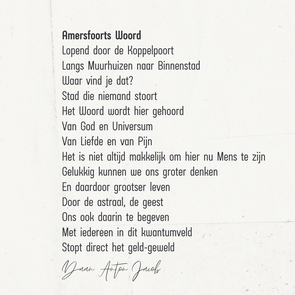 Amersfoorts Woord
Lopend door de Koppelpoort
Langs Muurhuizen naar Binnenstad
Waar vind je dat?
Stad die niemand stoort
Het Woord wordt hier gehoord
Van God en Universum
Van Liefde en van Pijn
Het is niet altijd makkelijk om hier nu Mens te zijn
Gelukkig kunnen we ons groter denken
En daardoor grootser leven
Door de astraal, de geest
Ons ook daarin te begeven
Met iedereen in dit kwantumveld
Stopt direct het geld-geweld
Daan Anton Jacobs